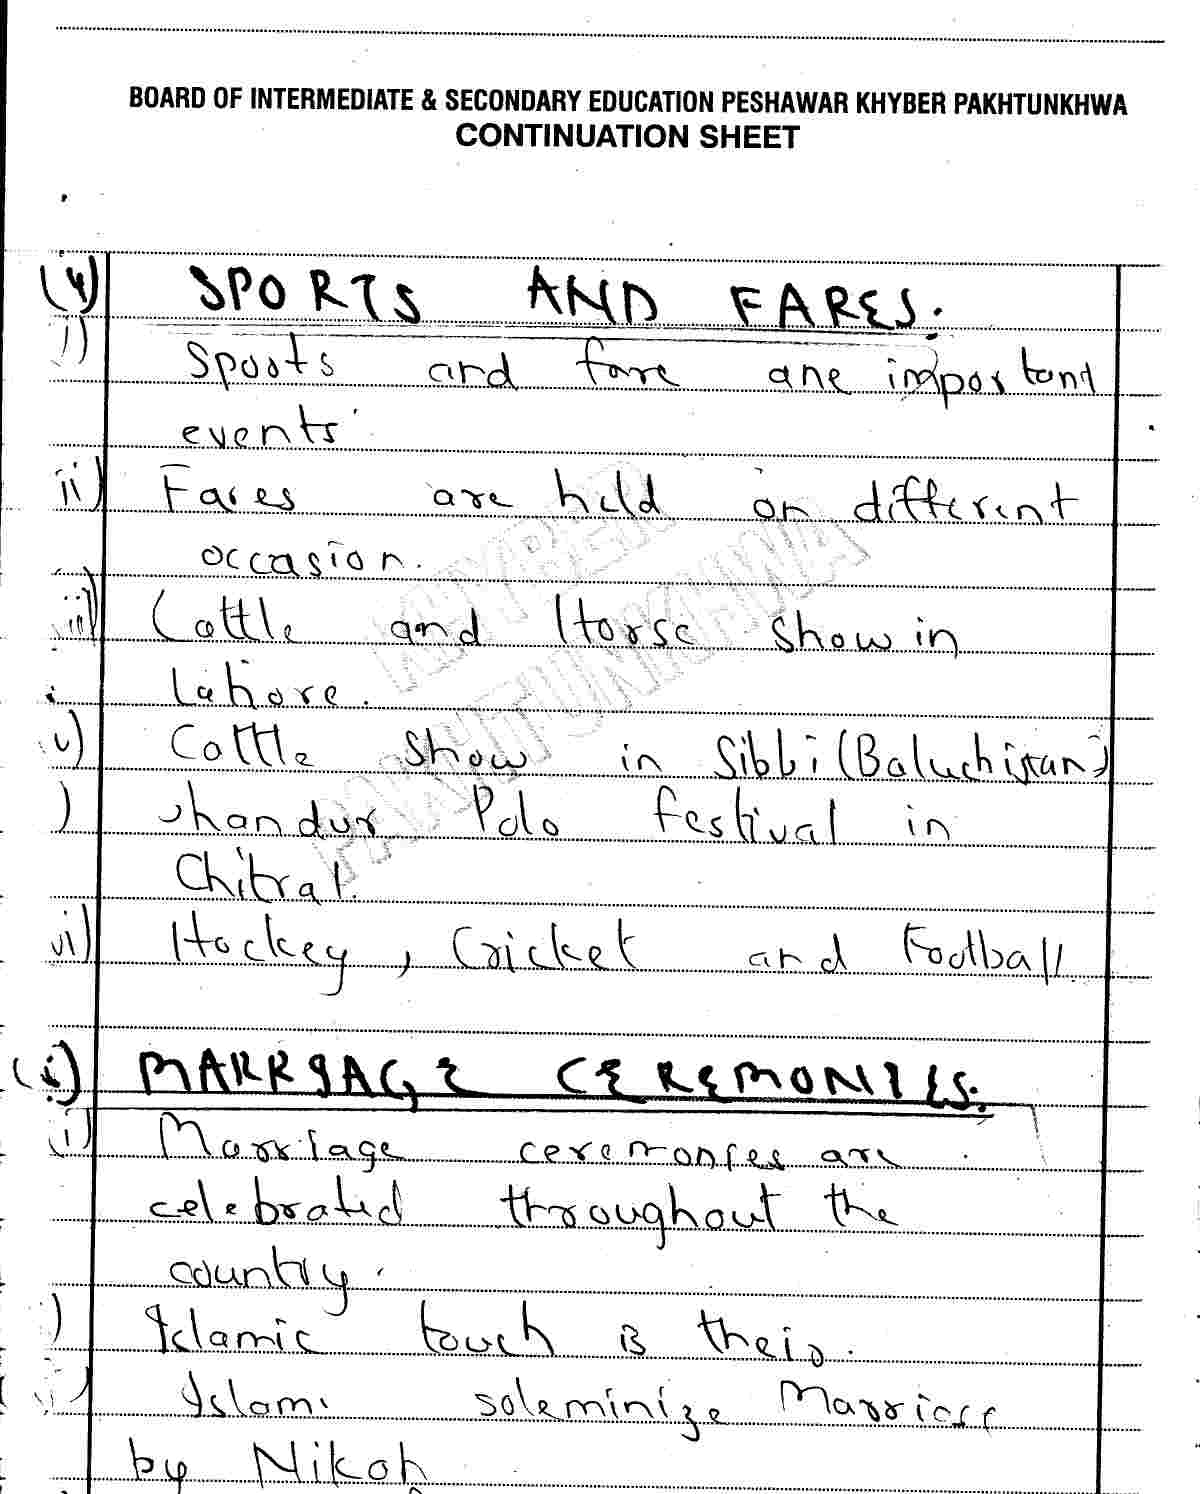 BOARD OF INTERMEDIATE & SECONDARY EDUCATION PESHAWAR KHYBER PAKHTUNKHWA
CONTINUATION SHEET
(4) SPORTS AND FARES.
i) Sports and fare are important
events
ii) Fares are held on different
occasion.
iii) Cattle and Horse show in
Lahore.
v) Cattle show in Sibbi (Baluchistan)
) Shandur Polo festival in
Chitral.
vi) Hockey, Cricket and Football
KHYBER
PAKHTUNKHWA
MARRIAGE CEREMONIES.
i) Marriage ceremonies are
celebrated throughout the
country.
) Islamic touch is their.
Islam soleminize Marriage
by Nikah